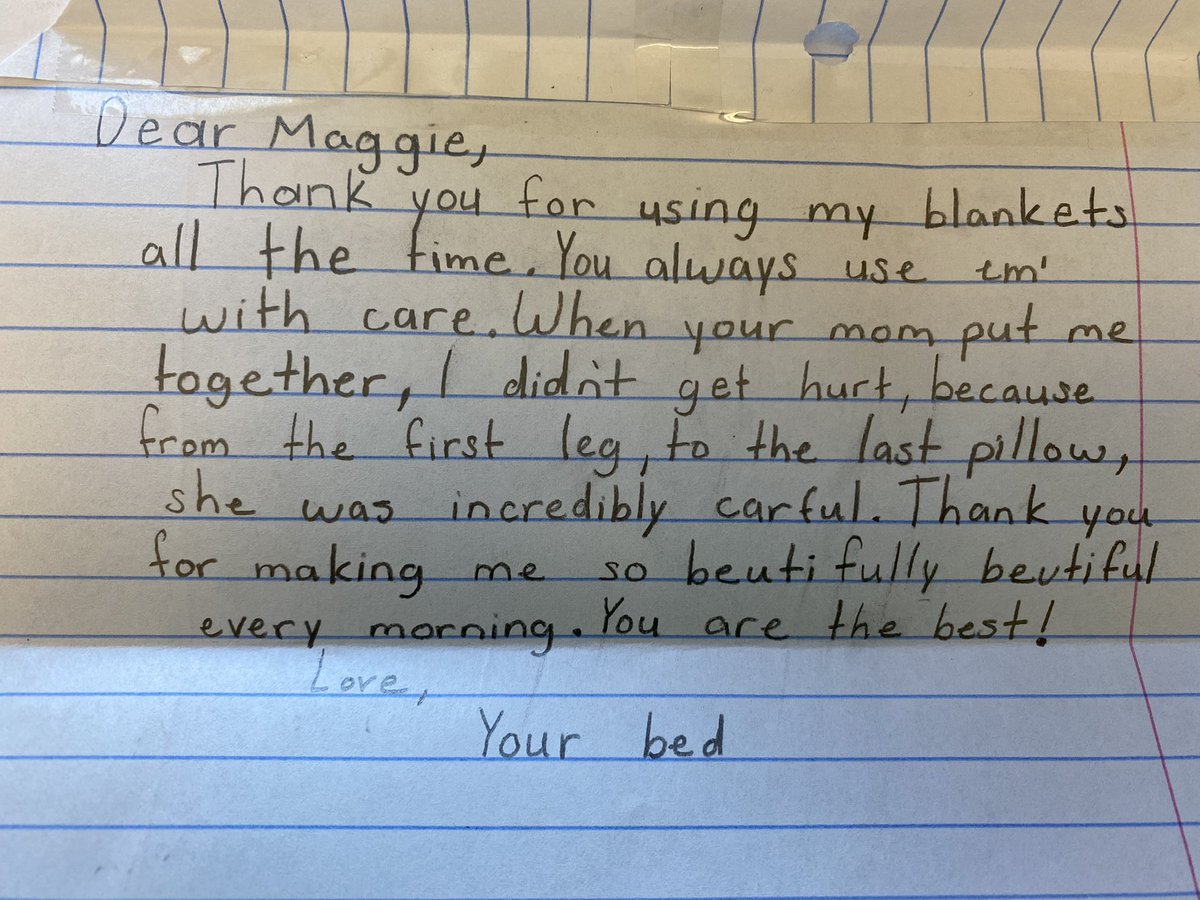 Dear Maggie,
Thank you for using my blankets
all the time. You always use em'
with care. When your mom put me
together, I didn't get hurt, because
from the first leg, to the last pillow,
she was incredibly carful. Thank you
for making me so beutifully beutiful
every morning. You are the best!
Love,
Your bed